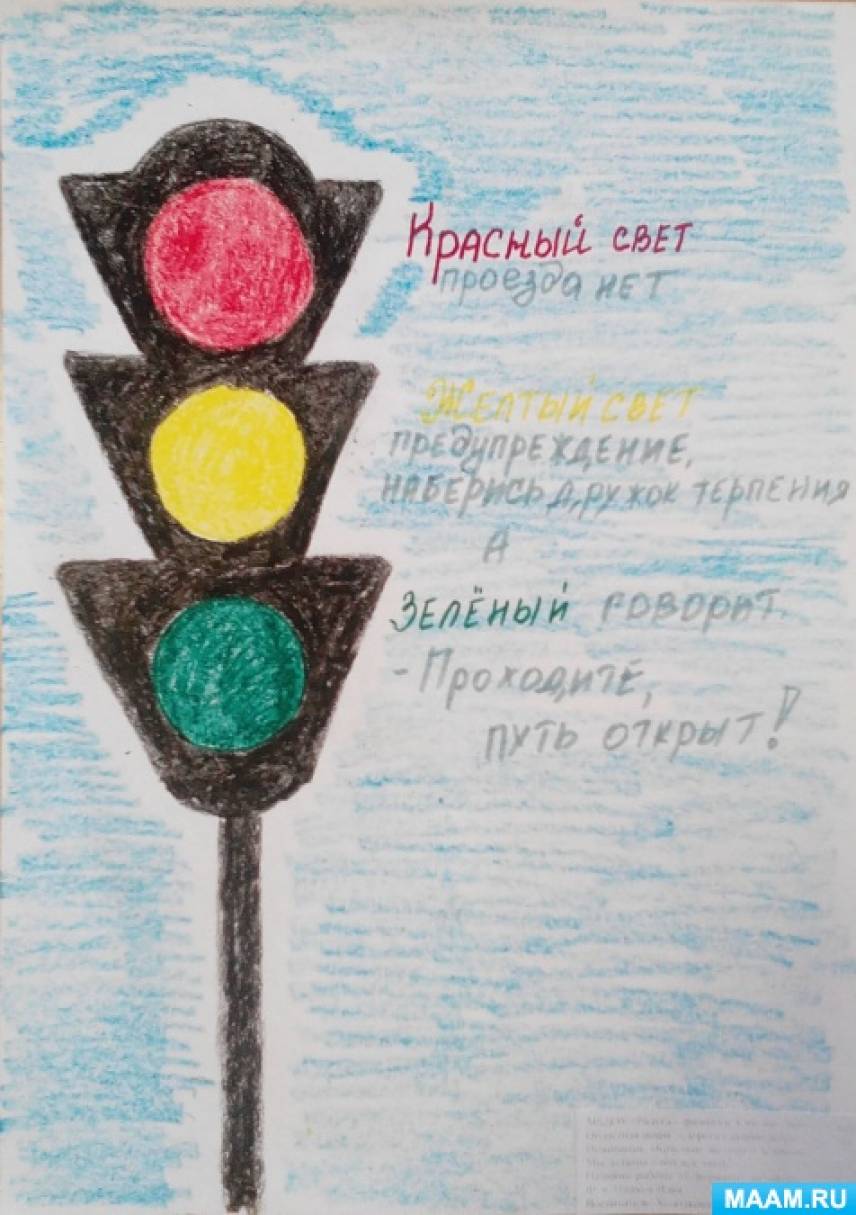 Красный свет
проезда нет
Желтый свет
предупреждение,
наберись дружок терпения
А
Зелёный говорит
- Проходите,
путь открыт!
MAAM.RU